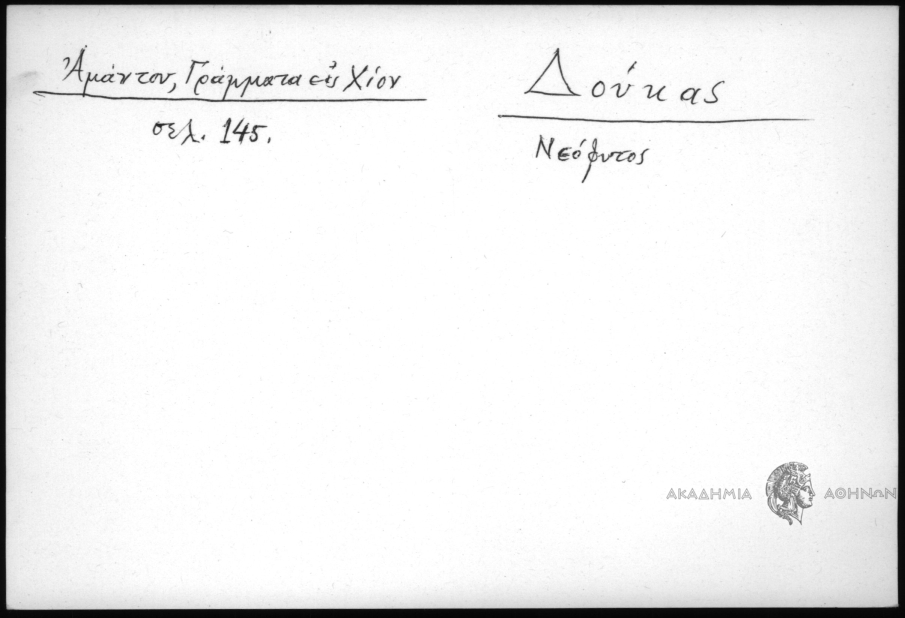 Ἀμάντου, Γράμματα εἰς Χίον
σελ. 145.
Δούκας
Νεόφυτος
ΑΚΑΔΗΜΙΑ ΑΘΗΝΩΝ